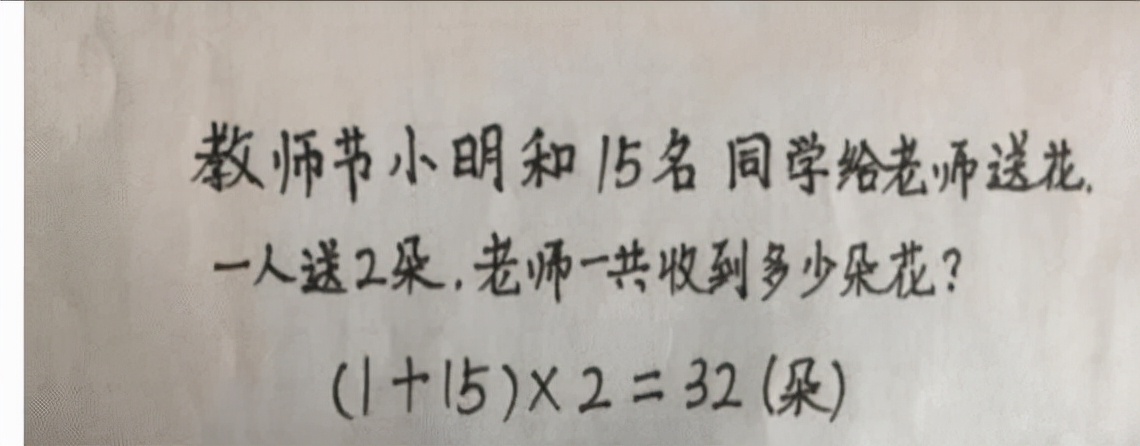 教师节小明和15名同学给老师送花.
一人送2朵.老师一共收到多少朵花?
(1+15)×2=32(朵)